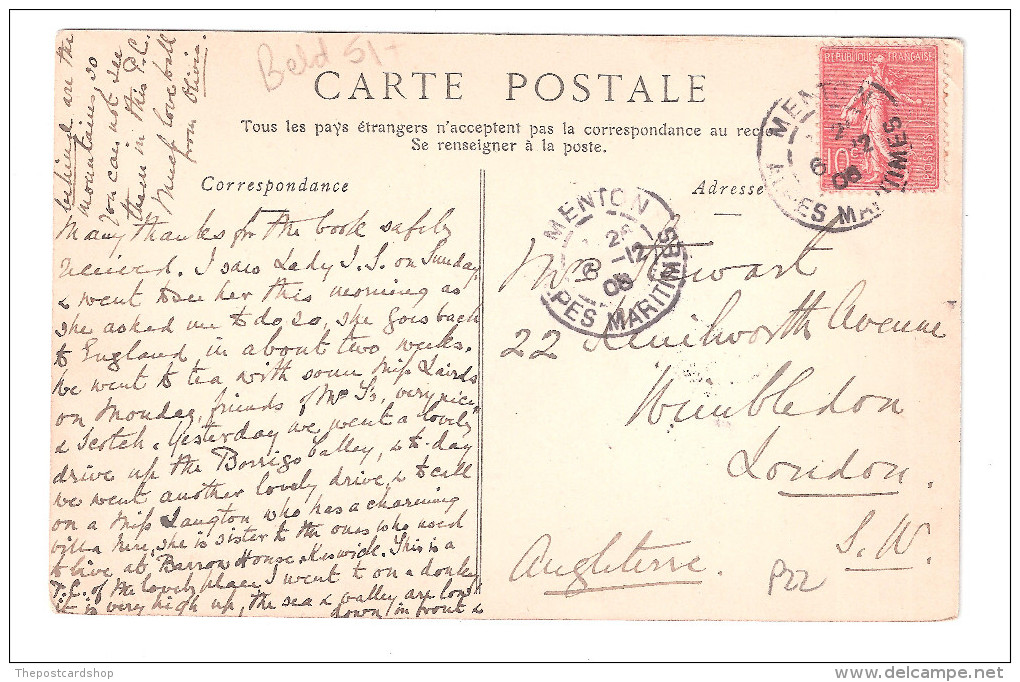 Beld 5/-
CARTE POSTALE
Tous les pays étrangers n'acceptent pas la correspondance au recto
Se renseigner à la poste.
Correspondance
Adresse
Many thanks for the book safely
received. I saw Lady J.S. on Sunday
& went to see her this morning as
she asked me to do so, she goes back
to England in about two weeks.
We went to tea with some Miss Lairds
on Monday, friends of Mrs S's, very nice
& Scotch. Yesterday we went a lovely
drive up the Borrigo Valley, & to-day
we went another lovely drive, & to call
on a Miss Langton who has a charming
villa here, she is sister to the ones who used
to live at Barrow House, Keswick. This is a
P.C. of the lovely place I went to on a donkey
it is very high up, the sea & valley are low
down in front &
behind are the
mountains, so
you can not see
them in this P.C.
Much love to all
from Olivia.
Mrs Stewart
22 Kenilworth Avenue
Wimbledon
London.
S.W.
Angleterre.
P22
REPUBLIQUE FRANÇAISE
10
POSTES
MENTON
2
-12
6
06
ALPES MARITIMES
MENTON
26
-12
6
06
ALPES MARITIMES
Thepostcardshop
www.delcampe.net